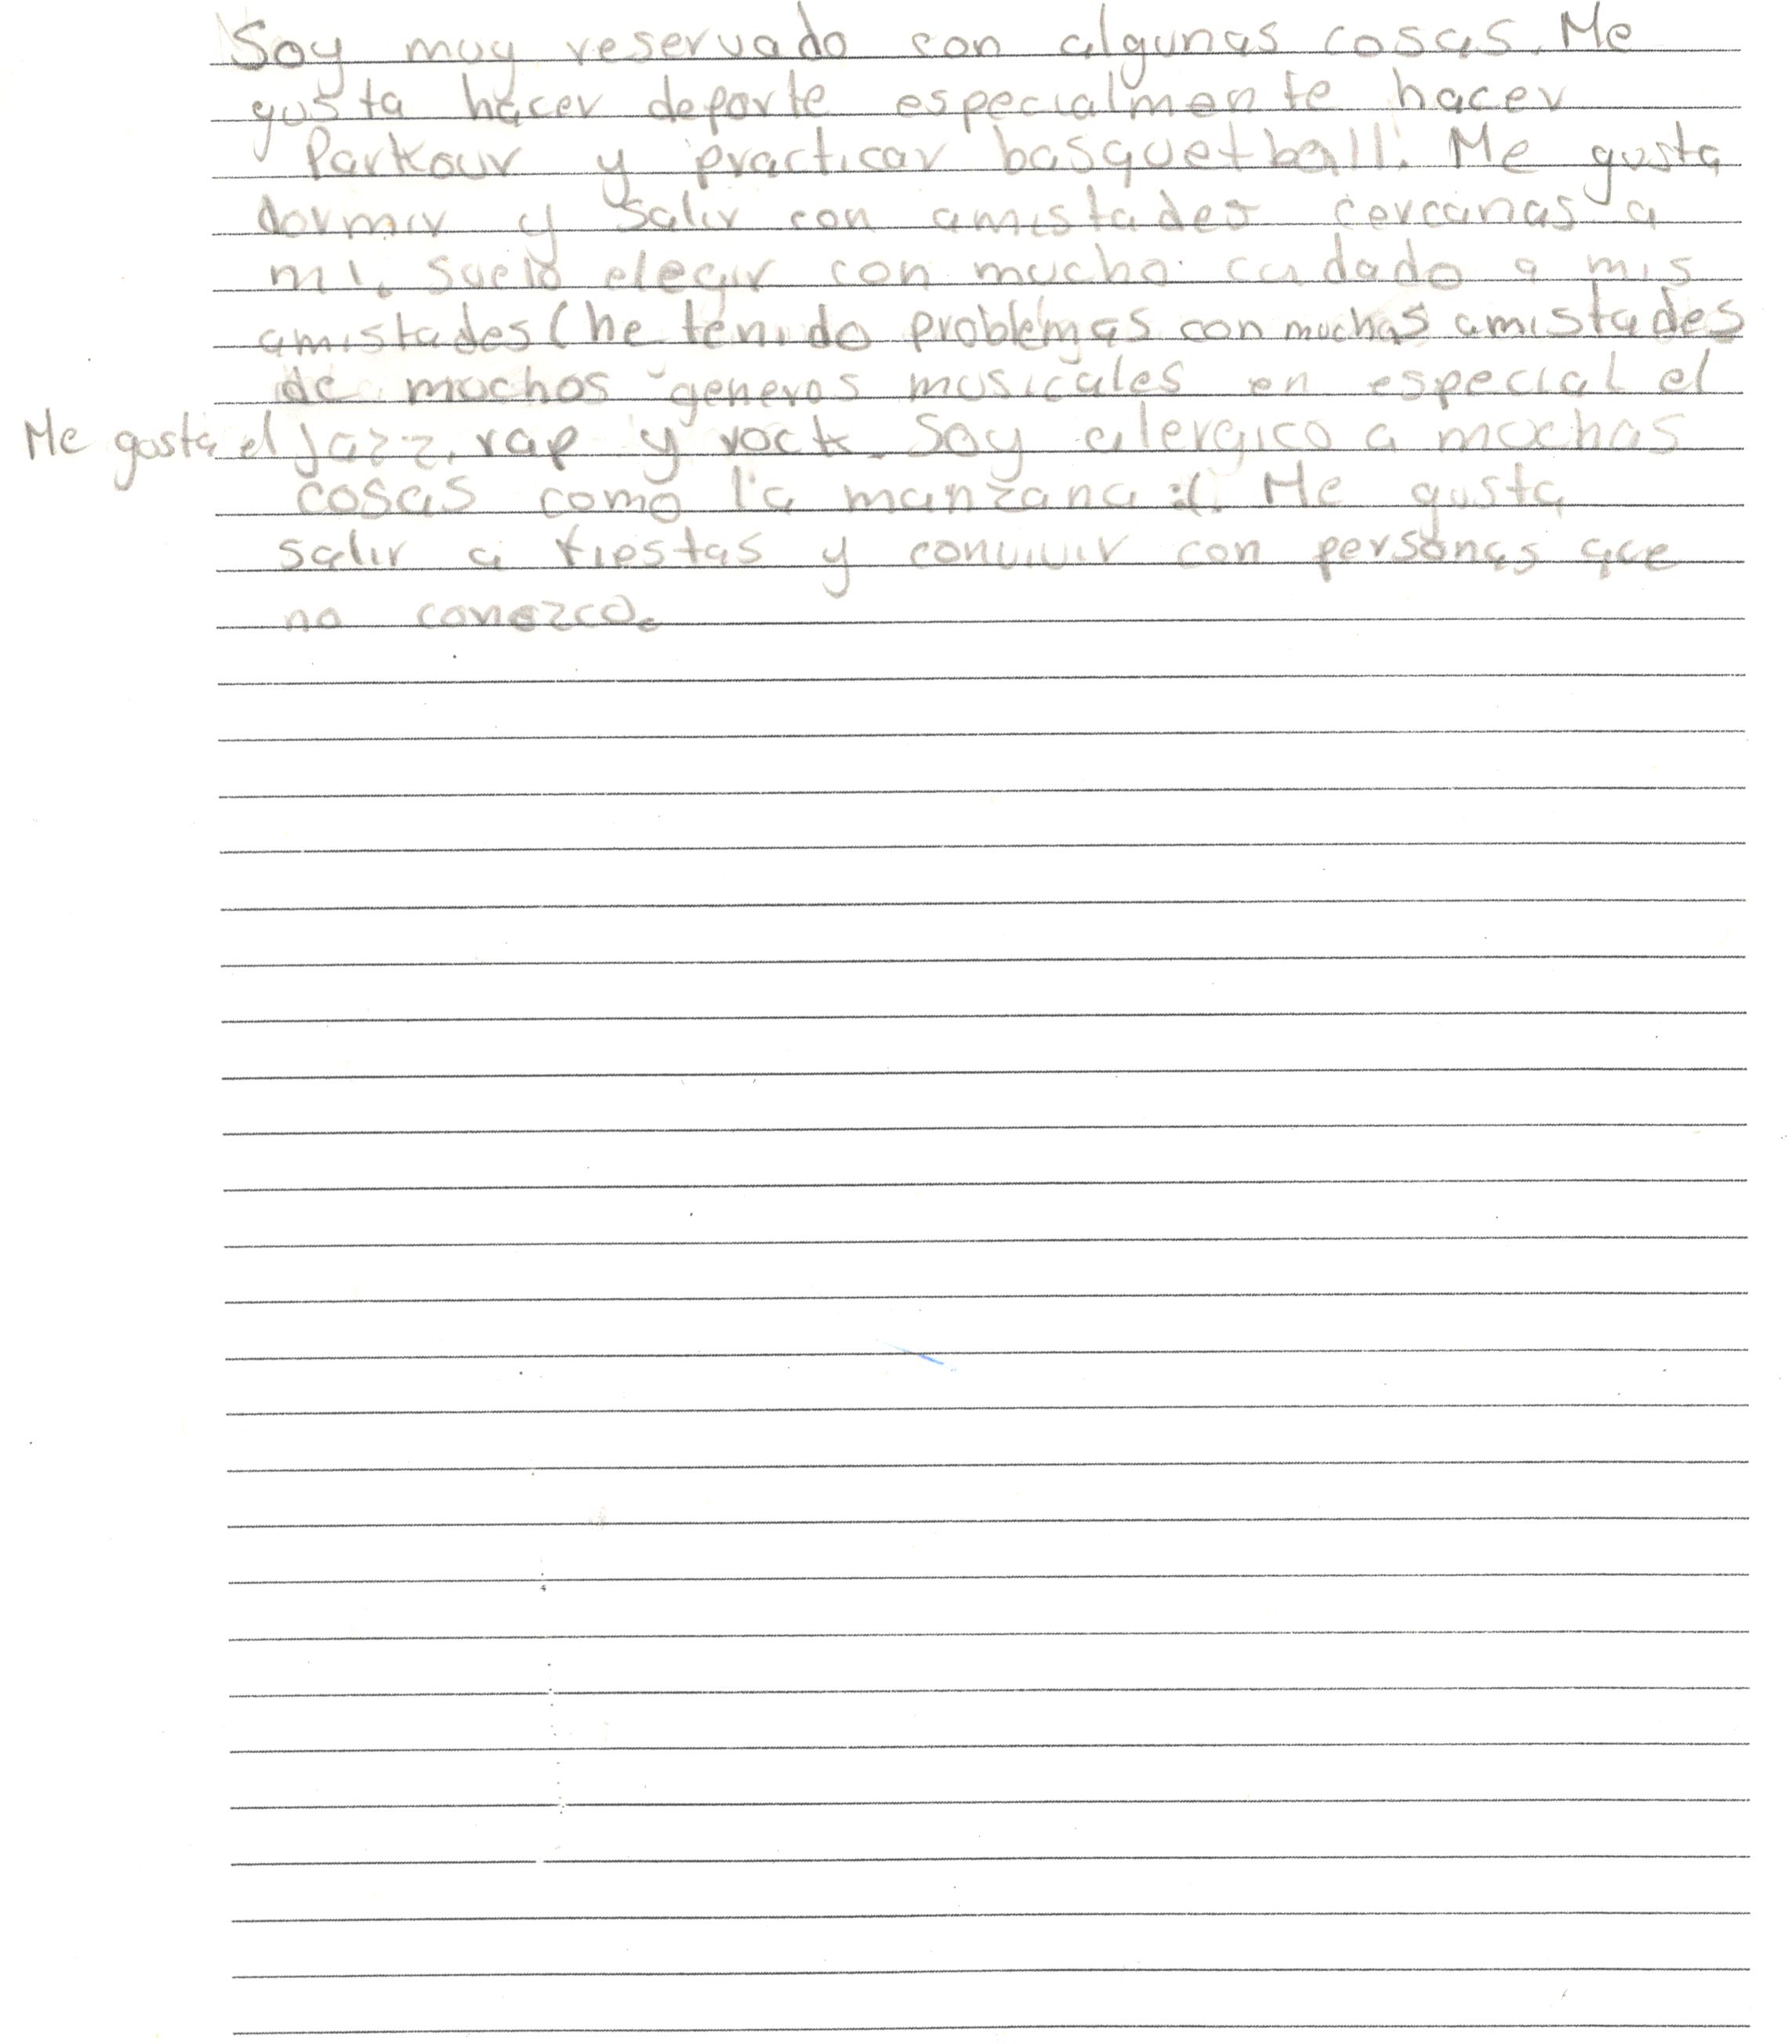 Soy muy reservado con algunas cosas. Me
gusta hacer deporte especialmente hacer
Parkour y practicar basquetball. Me gusta
dormir y salir con amistades cercanas a
mi. Suelo elegir con mucho cuidado a mis
amistades (he tenido problemas con muchas amistades
de muchos generos musicales en especial el
Me gusta el jazz, rap y rock. Soy alergico a muchas
cosas como la manzana :(. Me gusta
salir a fiestas y convivir con personas que
no conozco.